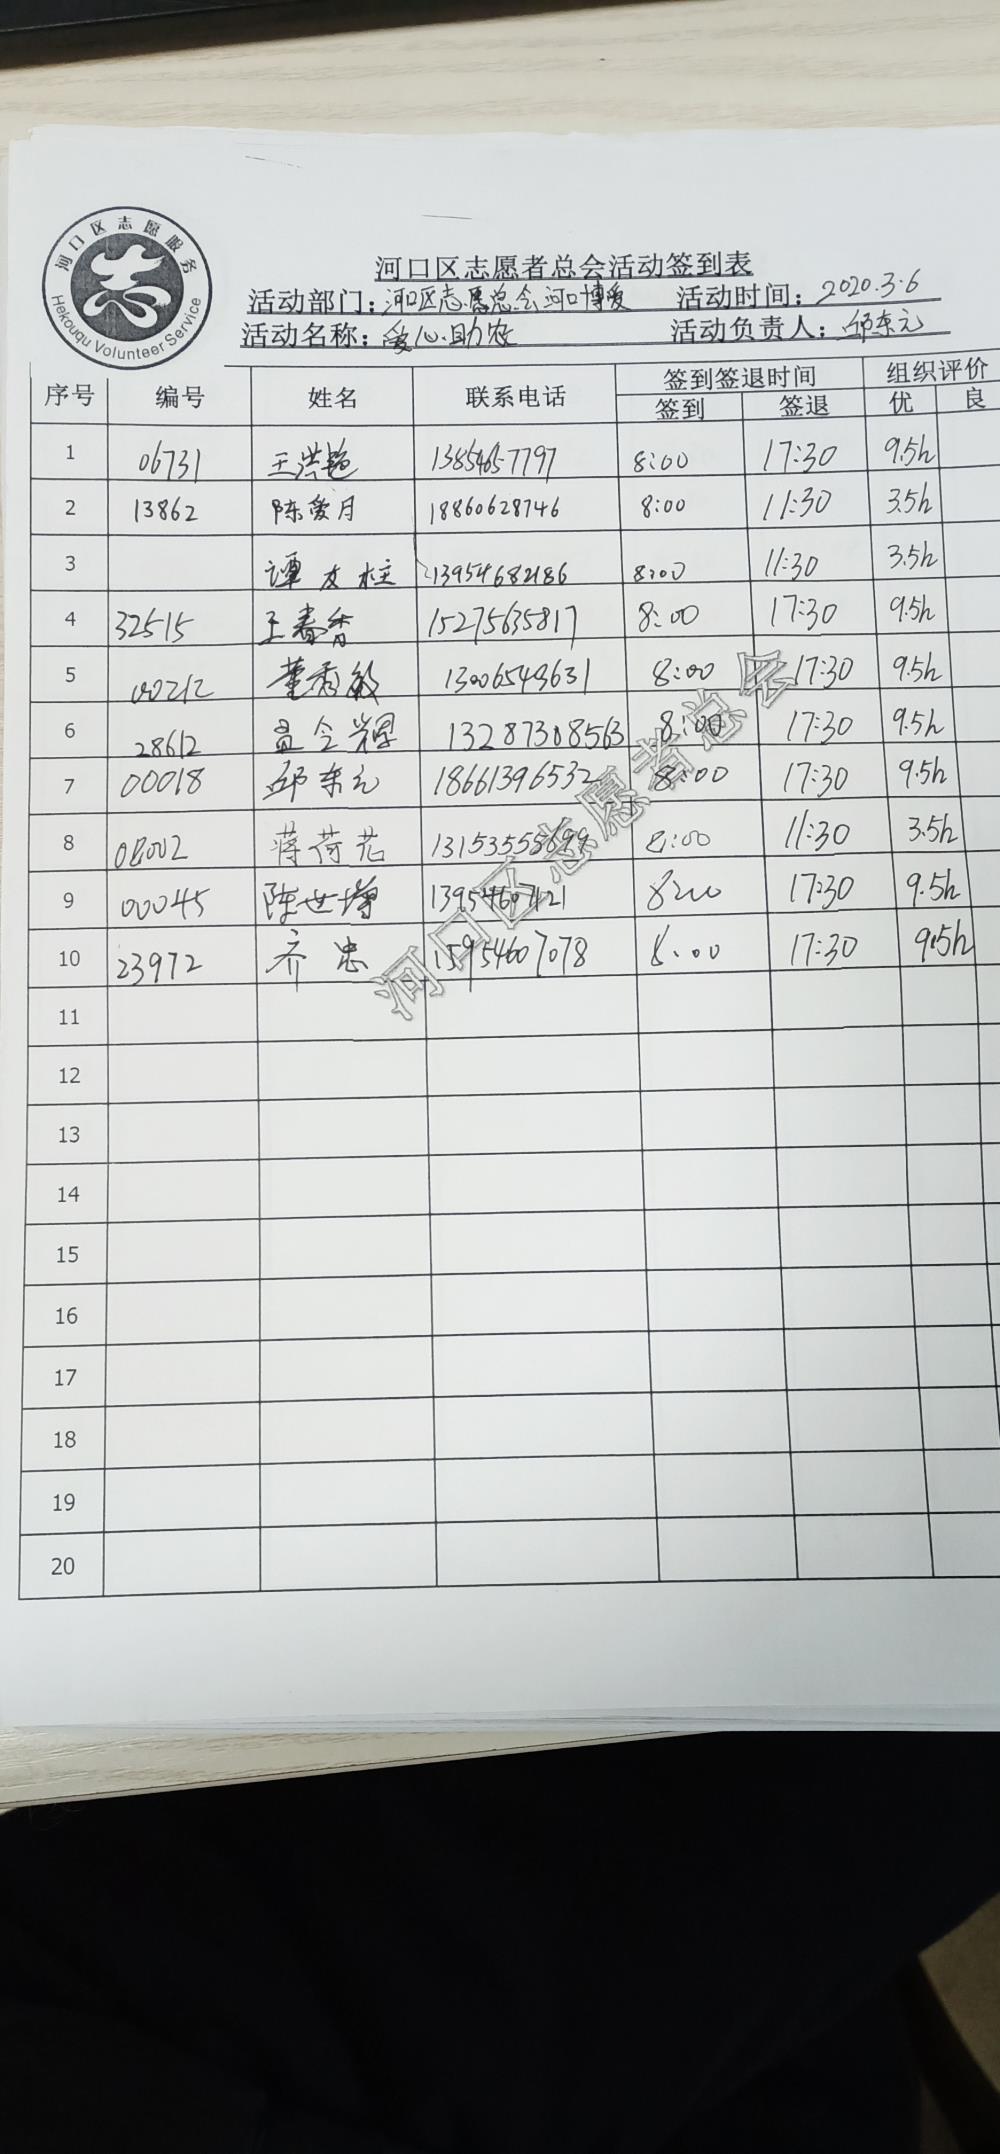 河口区志愿服务
Hekouqu Volunteer Service
河口区志愿者总会活动签到表
活动部门：河口区志愿总会河口博爱 活动时间：2020.3.6
活动名称：爱心助农 活动负责人：邱东元
序号 编号 姓名 联系电话 签到签退时间 组织评价
签到 签退 优 良
1 06731 王洪艳 13854657797 8:00 17:30 9.5h
2 13862 陈爱月 18860628746 8:00 11:30 3.5h
3 谭友柱 13954682186 8:00 11:30 3.5h
4 32515 王春香 15275635817 8:00 17:30 9.5h
5 00212 董秀敏 13006543631 8:00 17:30 9.5h
6 28612 孟令辉 13287308563 8:00 17:30 9.5h
7 00018 邱东元 18661396532 8:00 17:30 9.5h
8 蒋荷花 8:00 11:30 3.5h
9 00045 陈世增 8:00 17:30 9.5h
10 23972 齐忠 15954607078 8:00 17:30 9.5h
11
12
13
14
15
16
17
18
19
20
河口区志愿者总会